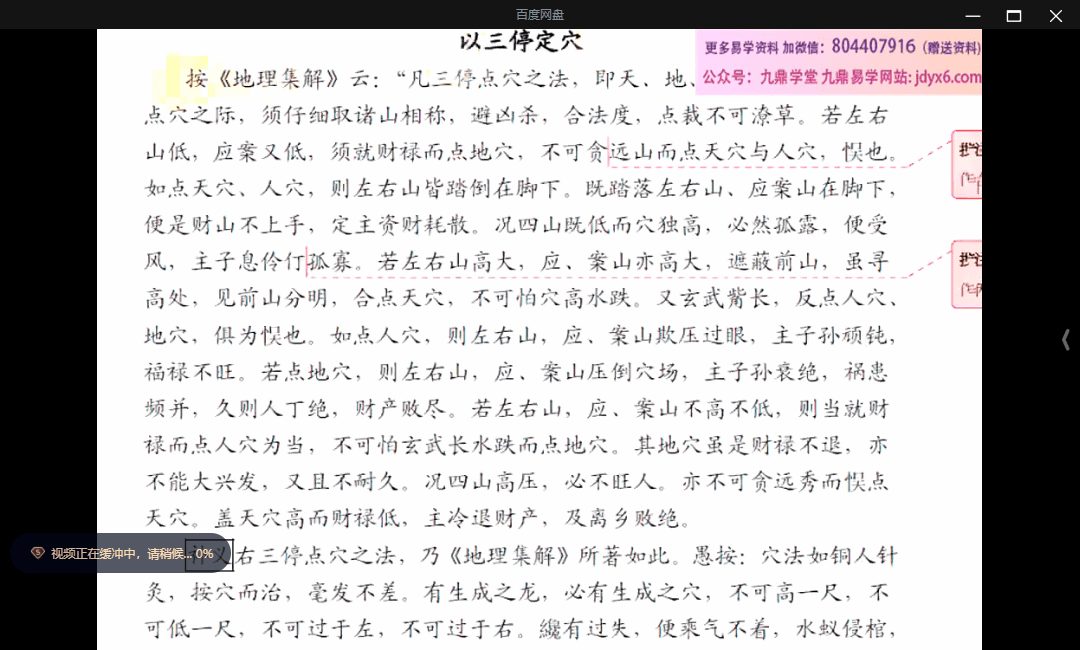 百度网盘
以三停定穴
更多易学资料 加微信：804407916（赠送资料)
公众号：九鼎学堂 九鼎易学网站: jdyx6.com
按《地理集解》云：“凡三停点穴之法，即天、地、
点穴之际，须仔细取诸山相称，避凶杀，合法度，点裁不可潦草。若左右
山低，应案又低，须就财禄而点地穴，不可贪远山而点天穴与人穴，悮也。
如点天穴、人穴，则左右山皆踏倒在脚下。既踏落左右山、应案山在脚下，
便是财山不上手，定主资财耗散。况四山既低而穴独高，必然孤露，便受
风，主子息伶仃孤寡。若左右山高大，应、案山亦高大，遮蔽前山，虽寻
高处，见前山分明，合点天穴，不可怕穴高水跌。又玄武觜长，反点人穴、
地穴，俱为悮也。如点人穴，则左右山，应、案山欺压过眼，主子孙顽钝，
福禄不旺。若点地穴，则左右山，应、案山压倒穴场，主子孙衰绝，祸患
频并，久则人丁绝，财产败尽。若左右山，应、案山不高不低，则当就财
禄而点人穴为当，不可怕玄武长水跌而点地穴。其地穴虽是财禄不退，亦
不能大兴发，又且不耐久。况四山高压，必不旺人。亦不可贪远秀而悮点
天穴。盖天穴高而财禄低，主冷退财产，及离乡败绝。
视频正在缓冲中，请稍候... 0%
右三停点穴之法，乃《地理集解》所著如此。愚按：穴法如铜人针
灸，按穴而治，毫发不差。有生成之龙，必有生成之穴，不可高一尺，不
可低一尺，不可过于左，不可过于右。纔有过失，便乘气不着，水蚁侵棺，